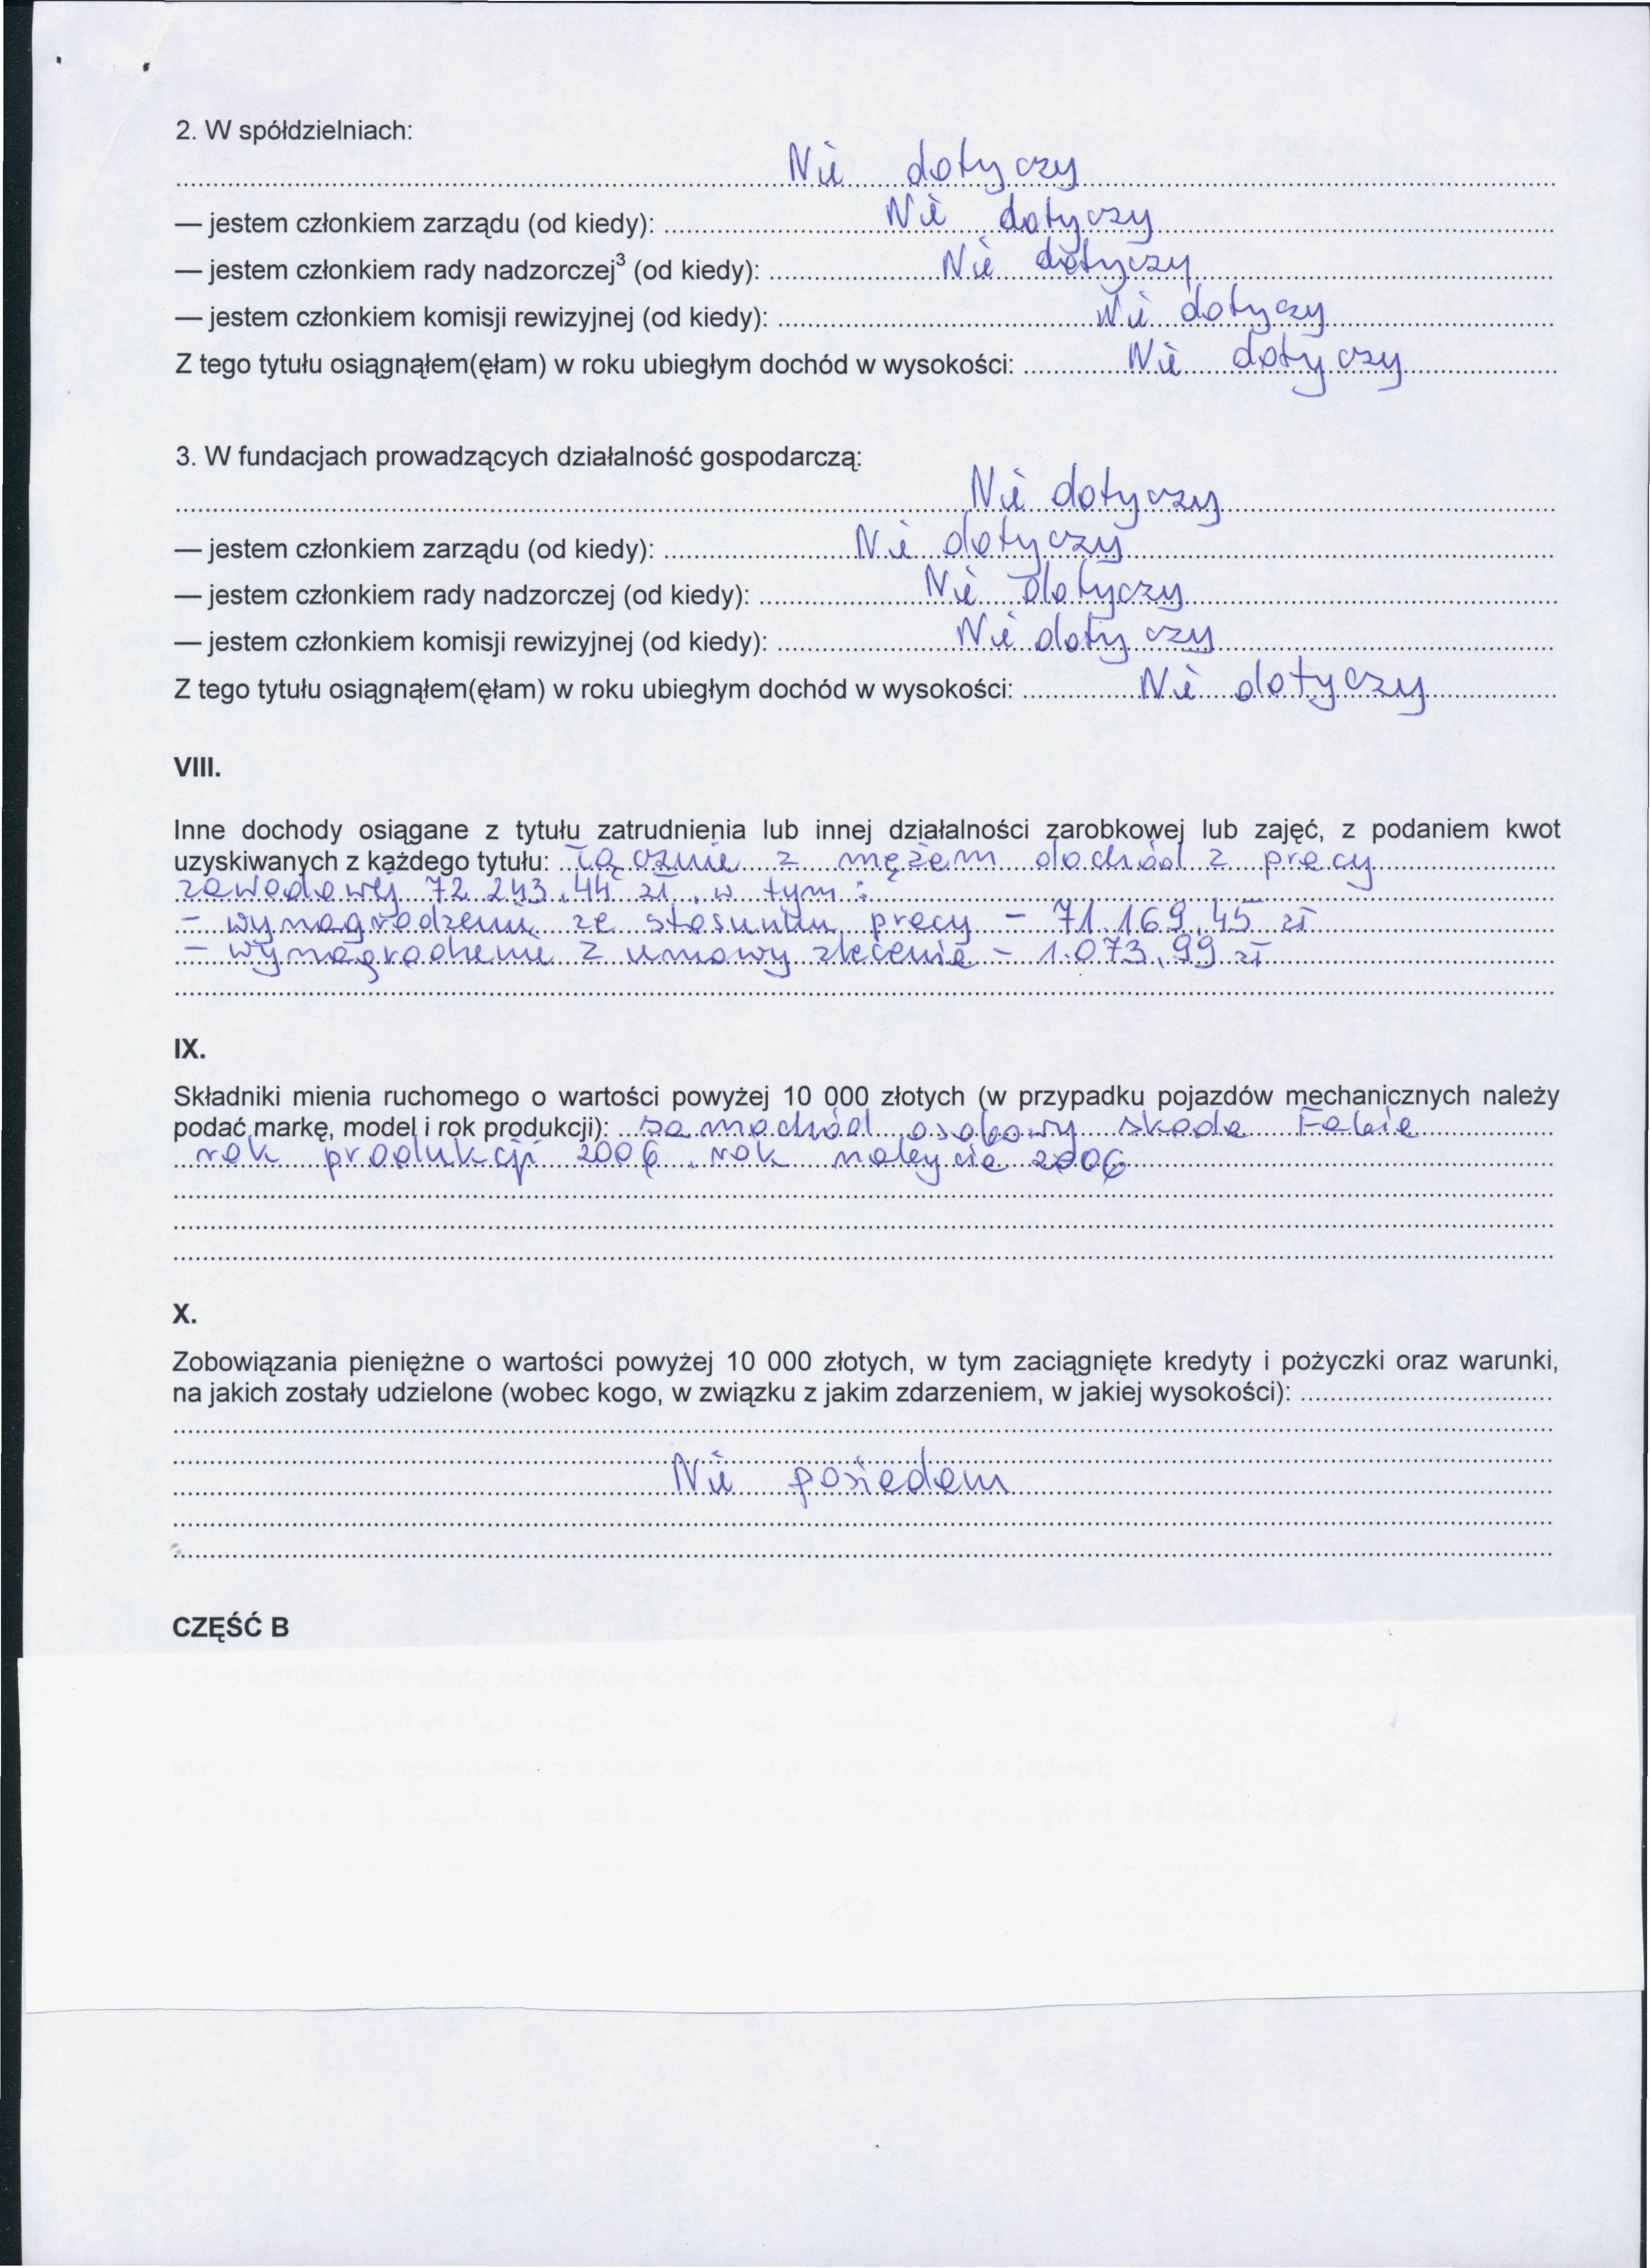 2. W spółdzielniach:
Nie dotyczy
— jestem członkiem zarządu (od kiedy): Nie dotyczy
— jestem członkiem rady nadzorczej³ (od kiedy): Nie dotyczy
— jestem członkiem komisji rewizyjnej (od kiedy): Nie dotyczy
Z tego tytułu osiągnąłem(ęłam) w roku ubiegłym dochód w wysokości: Nie dotyczy
3. W fundacjach prowadzących działalność gospodarczą:
Nie dotyczy
— jestem członkiem zarządu (od kiedy): Nie dotyczy
— jestem członkiem rady nadzorczej (od kiedy): Nie dotyczy
— jestem członkiem komisji rewizyjnej (od kiedy): Nie dotyczy
Z tego tytułu osiągnąłem(ęłam) w roku ubiegłym dochód w wysokości: Nie dotyczy
VIII.
Inne dochody osiągane z tytułu zatrudnienia lub innej działalności zarobkowej lub zajęć, z podaniem kwot
uzyskiwanych z każdego tytułu: łącznie z mężem dochód z pracy
zawodowej 72 243,44 zł, w tym:
- wynagrodzenie ze stosunku pracy - 71.169,45 zł
- wynagrodzenie z umowy zlecenia - 1.073,99 zł
IX.
Składniki mienia ruchomego o wartości powyżej 10 000 złotych (w przypadku pojazdów mechanicznych należy
podać markę, model i rok produkcji): samochód osobowy skoda Fabia
rok produkcji 2006, rok nabycia 2006
X.
Zobowiązania pieniężne o wartości powyżej 10 000 złotych, w tym zaciągnięte kredyty i pożyczki oraz warunki,
na jakich zostały udzielone (wobec kogo, w związku z jakim zdarzeniem, w jakiej wysokości):
Nie posiadam
CZĘŚĆ B